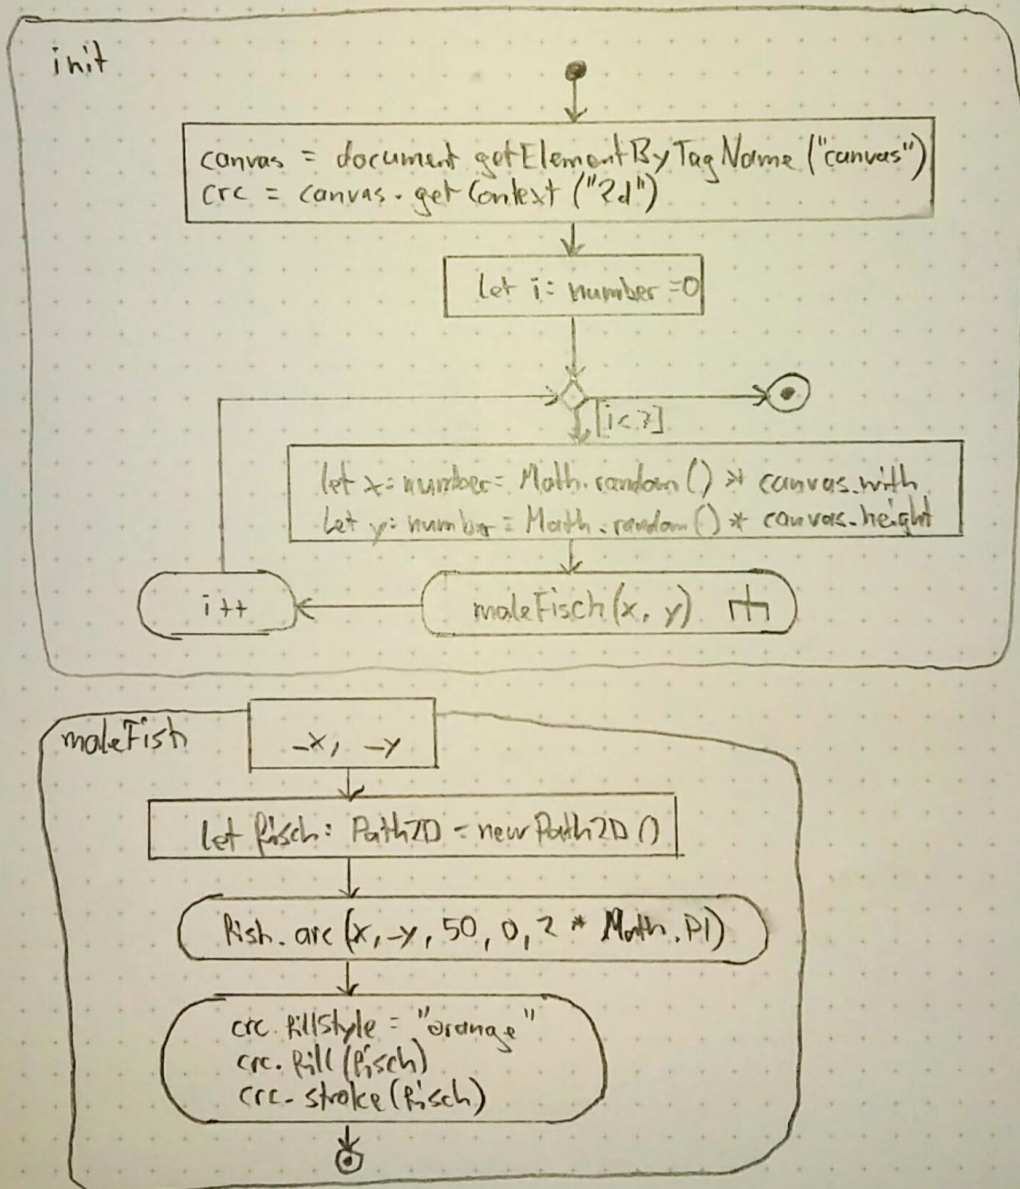 init
canvas = document getElementByTagName ("canvas")
crc = canvas.getContext ("2d")
let i: number =0
[i<7]
let x: number = Math.random() * canvas.with
let y: number = Math.random() * canvas.height
i++
maleFisch(x, y)
maleFish
_x, _y
let fisch: Path2D = new Path2D ()
fish.arc(x, _y, 50, 0, 2 * Math.PI)
crc.fillStyle = "orange"
crc.fill(fisch)
crc.stroke(fisch)